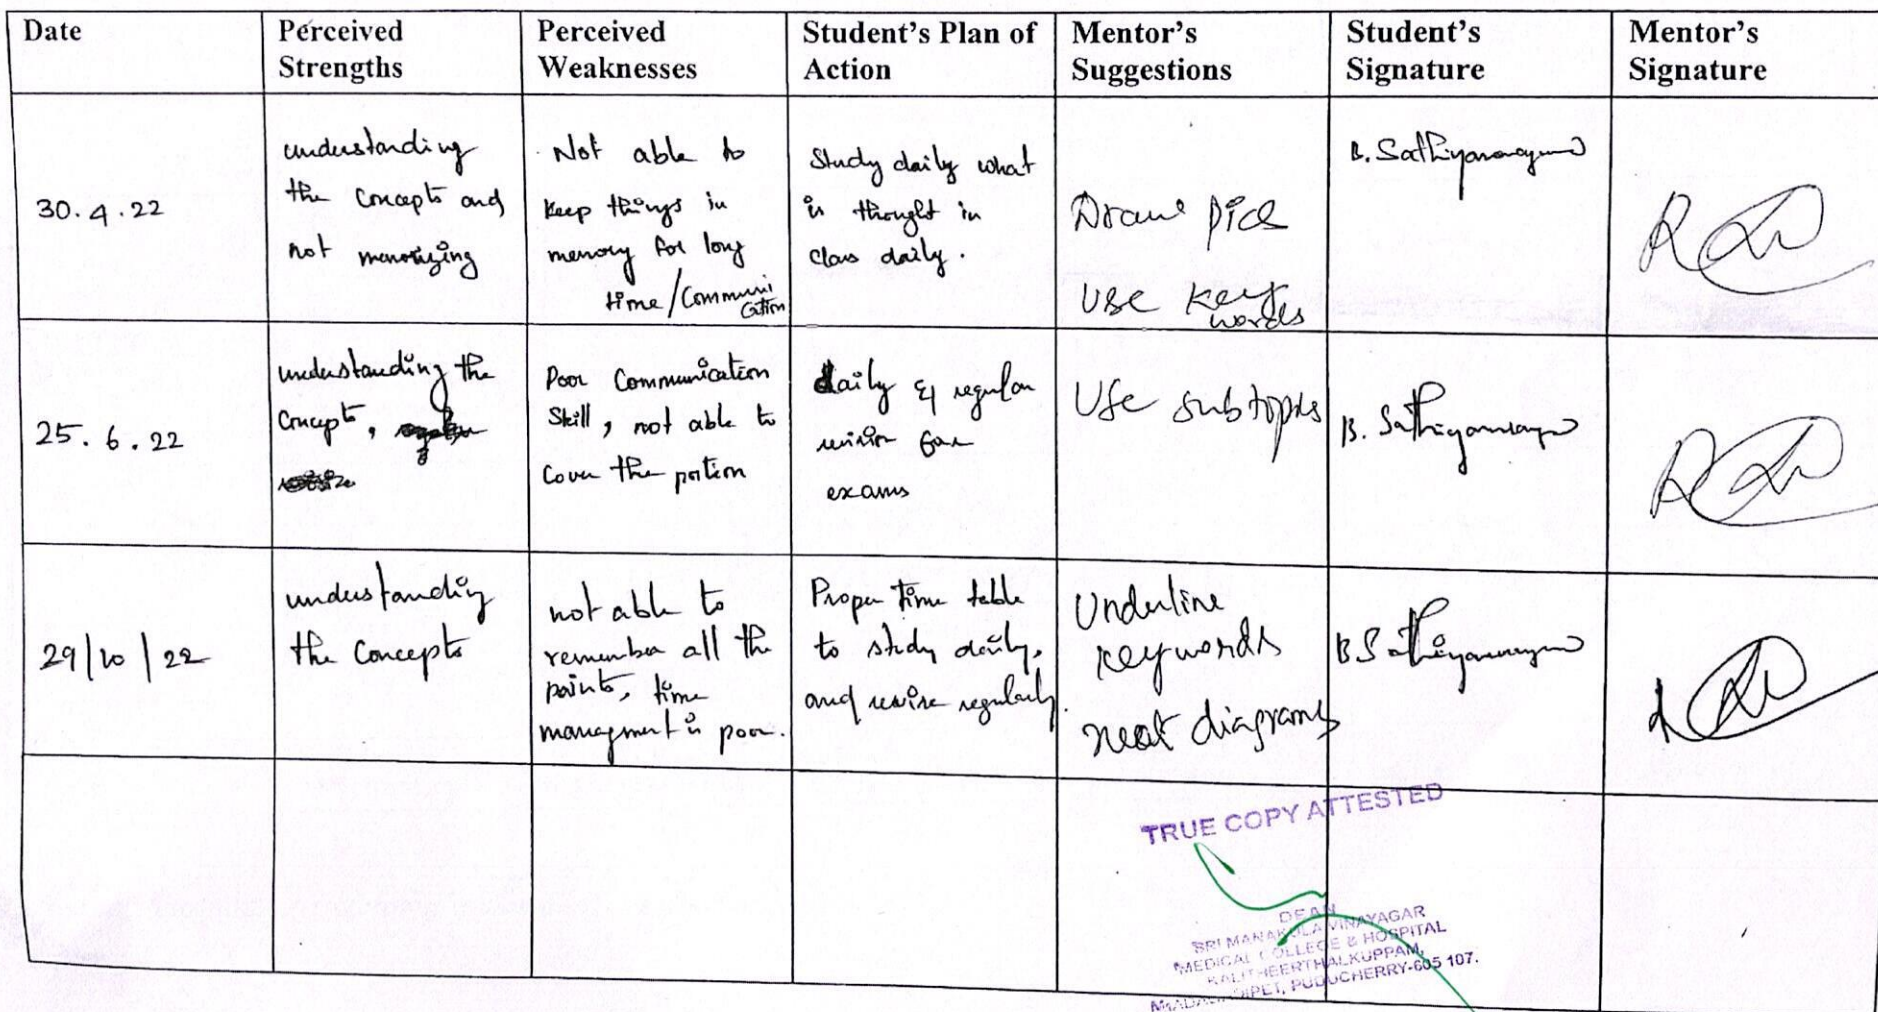 Date
Perceived
Strengths
Perceived
Weaknesses
Student's Plan of
Action
Mentor's
Suggestions
Student's
Signature
Mentor's
Signature
30.4.22
understanding
the Concepts and
not memorizing
Not able to
keep things in
memory for long
time/Communi
cation
Study daily what
is thought in
class daily.
Draw pics
Use key
words
B. Sathiyanarayanan
25.6.22
understanding the
Concept,
Poor Communication
Skill, not able to
Cover the portion
daily & regular
revision for
exams
Use subtopics
B. Sathiyanarayanan
29/10/22
understanding
the Concepts
not able to
remember all the
points, time
managment is poor.
Proper time table
to study daily,
and revise regularly.
Underline
keywords
neat diagrams
B. Sathiyanarayanan
TRUE COPY ATTESTED
DEAN
SRI MANAKULA VINAYAGAR
MEDICAL COLLEGE & HOSPITAL
KALITHEERTHALKUPPAM,
MADAGADIPET, PUDUCHERRY-605 107.